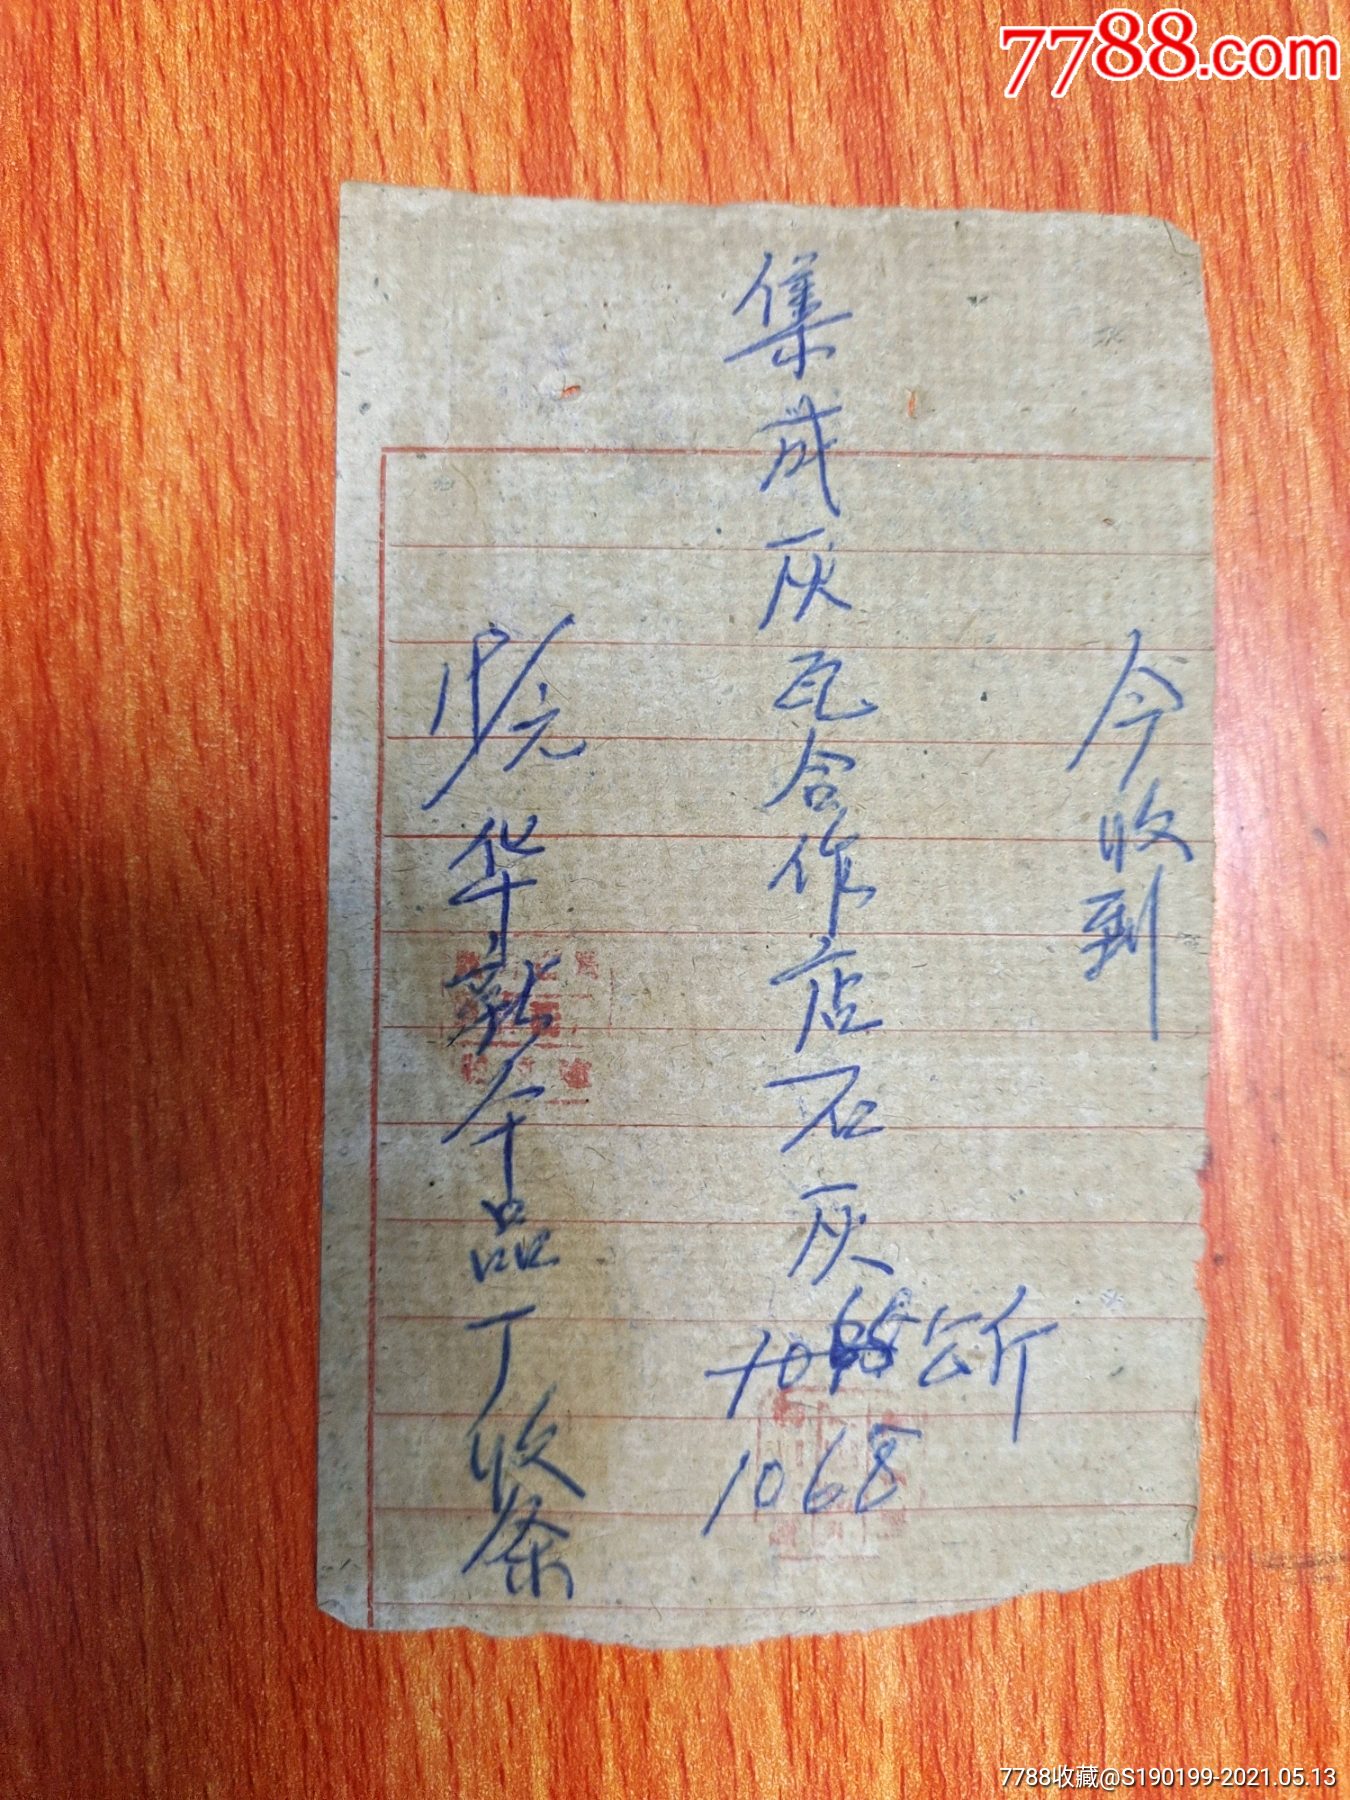 7788.com
今收到
集成灰瓦合作店石灰1065公斤
1068
华新伞品丁收条
7788收藏@S190199-2021.05.13